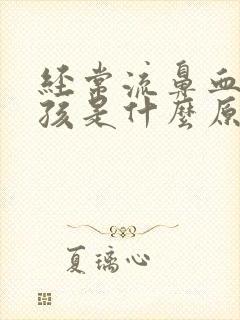 经常流鼻血
孩是什麼原
夏璃心